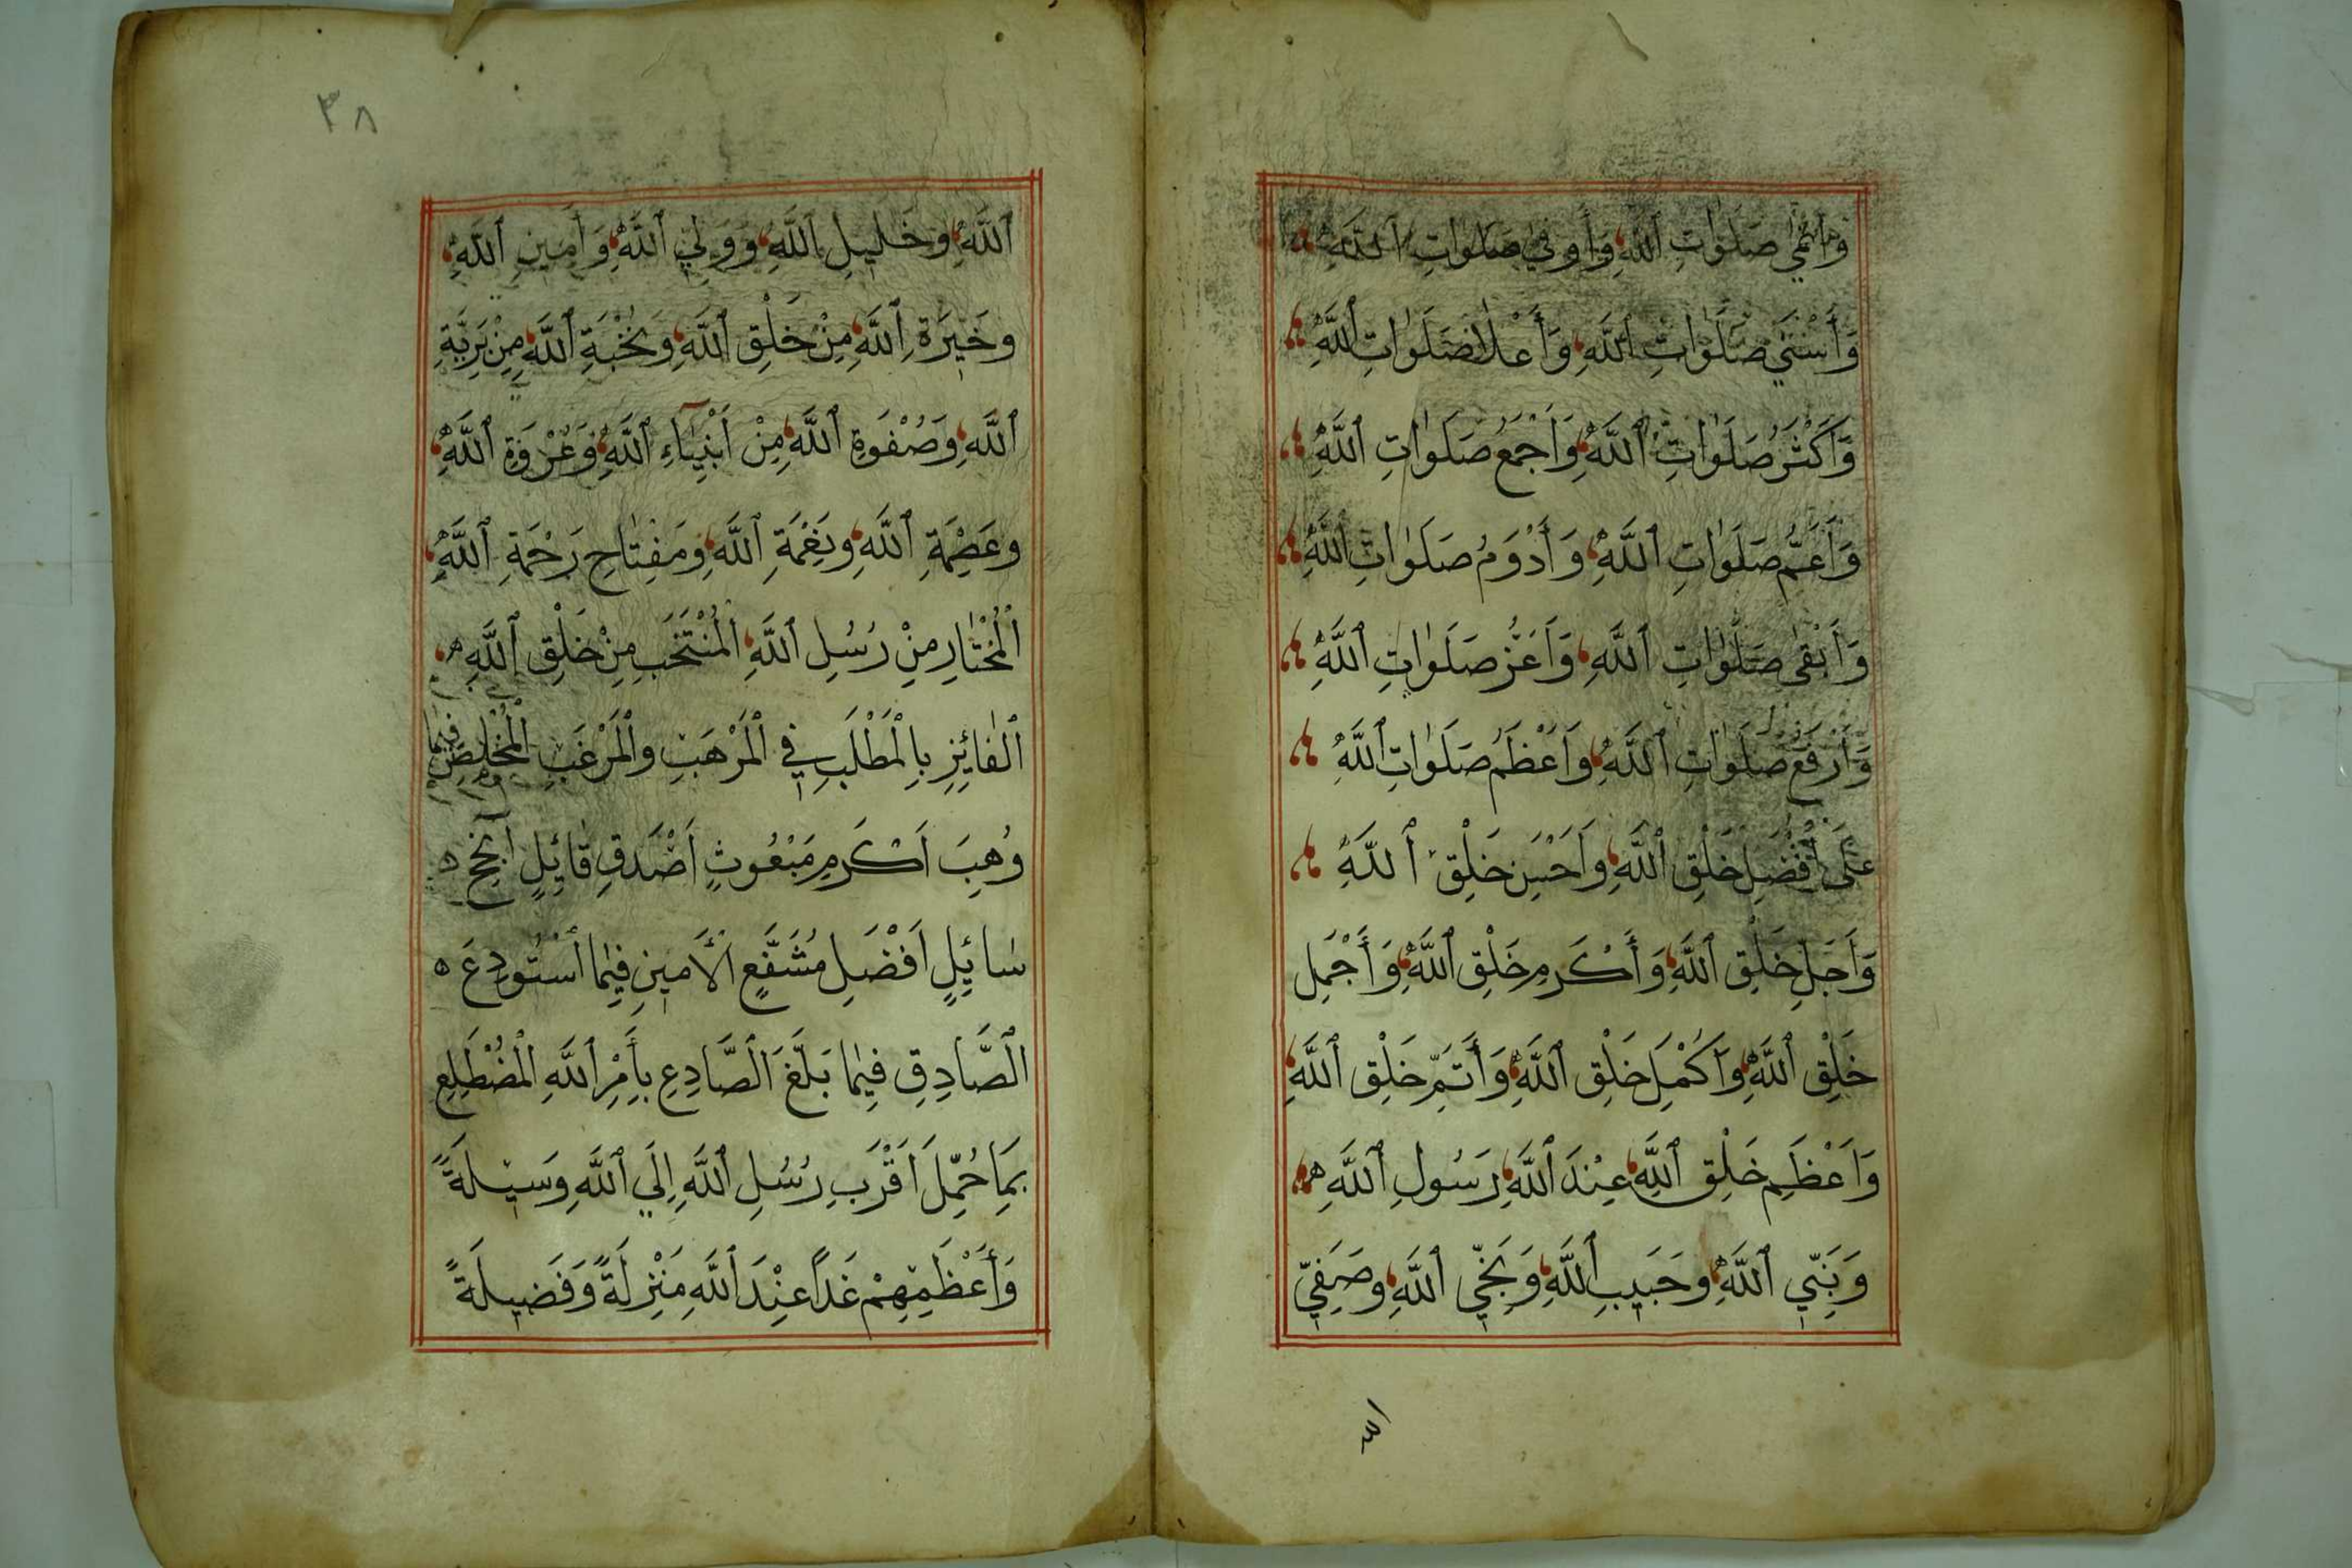 وَأَنْمٰى صَلَوٰاتِ اللَّهِ وَأَوْفىٰ صَلَوٰاتِ اَللَّهِ
وَأَسْنَىٰ صَلَوٰاتِ اَللَّهِ وَأَعْلٰا صَلَوٰاتِ اَللَّهِ
وَأَكْثَرُ صَلَوٰاتِ اَللَّهِ وَأَجْمَعُ صَلَوٰاتِ اَللَّهِ
وَأَعَمُّ صَلَوٰاتِ اَللَّهِ وَأَدْوَمُ صَلَوٰاتِ اَللَّهِ
وَأَبْقىٰ صَلَوٰاتِ اَللَّهِ وَأَعَزُّ صَلَوٰاتِ اَللَّهِ
وَأَرْفَعُ صَلَوٰاتِ اَللَّهِ وَأَعْظَمُ صَلَوٰاتِ اَللَّهِ
عَلىٰ أَفْضَلِ خَلْقِ اَللَّهِ وَأَحْسَنِ خَلْقِ اَللَّهِ
وَأَجَلِّ خَلْقِ اَللَّهِ وَأَكْرَمِ خَلْقِ اَللَّهِ وَأَجْمَلِ
خَلْقِ اَللَّهِ وَأَكْمَلِ خَلْقِ اَللَّهِ وَأَتَمِّ خَلْقِ اَللَّهِ
وَأَعْظَمِ خَلْقِ اَللَّهِ عِنْدَ اَللَّهِ رَسُولِ اَللَّهِ
وَنَبِيِّ اَللَّهِ وَحَبِيبِ اَللَّهِ وَنَجِيِّ اَللَّهِ وَصَفِيِّ
الله
٣٨
اَللَّهِ وَخَلِيلِ اَللَّهِ وَوَلِيِّ اَللَّهِ وَأَمِينِ اَللَّهِ
وَخَيْرَةِ اَللَّهِ مِنْ خَلْقِ اَللَّهِ وَنُخْبَةِ اَللَّهِ مِنْ بَرِيَّةِ
اَللَّهِ وَصَفْوَةِ اَللَّهِ مِنْ أَنْبِيٰآءِ اَللَّهِ وَعُرْوَةِ اَللَّهِ
وَعِصْمَةِ اَللَّهِ وَنِعْمَةِ اَللَّهِ وَمِفْتٰاحِ رَحْمَةِ اَللَّهِ
اَلْمُخْتٰارِ مِنْ رُسُلِ اَللَّهِ اَلْمُنْتَخَبِ مِنْ خَلْقِ اَللَّهِ
اَلْفٰائِزِ بِالْمَطْلَبِ فِي اَلْمَرْهَبِ وَالْمَرْغَبِ اَلْمُخْلَصِ فِيمٰا
وُهِبَ أَكْرَمِ مَبْعُوثٍ أَصْدَقِ قٰائِلٍ أَنْجَحِ
سٰائِلٍ أَفْضَلِ مُشَفَّعٍ اَلْأَمِينِ فِيمٰا اَسْتُودِعَ
اَلْصَّادِقِ فِيمٰا بَلَّغَ اَلْصَّادِعِ بِأَمْرِ اَللَّهِ اَلْمُضْطَلِعِ
بِمَا حُمِّلَ أَقْرَبِ رُسُلِ اَللَّهِ إِلَي اَللَّهِ وَسِيلَةً
وَأَعْظَمِهِمْ غَدًا عِنْدَ اَللَّهِ مَنْزِلَةً وَفَضِيلَةً